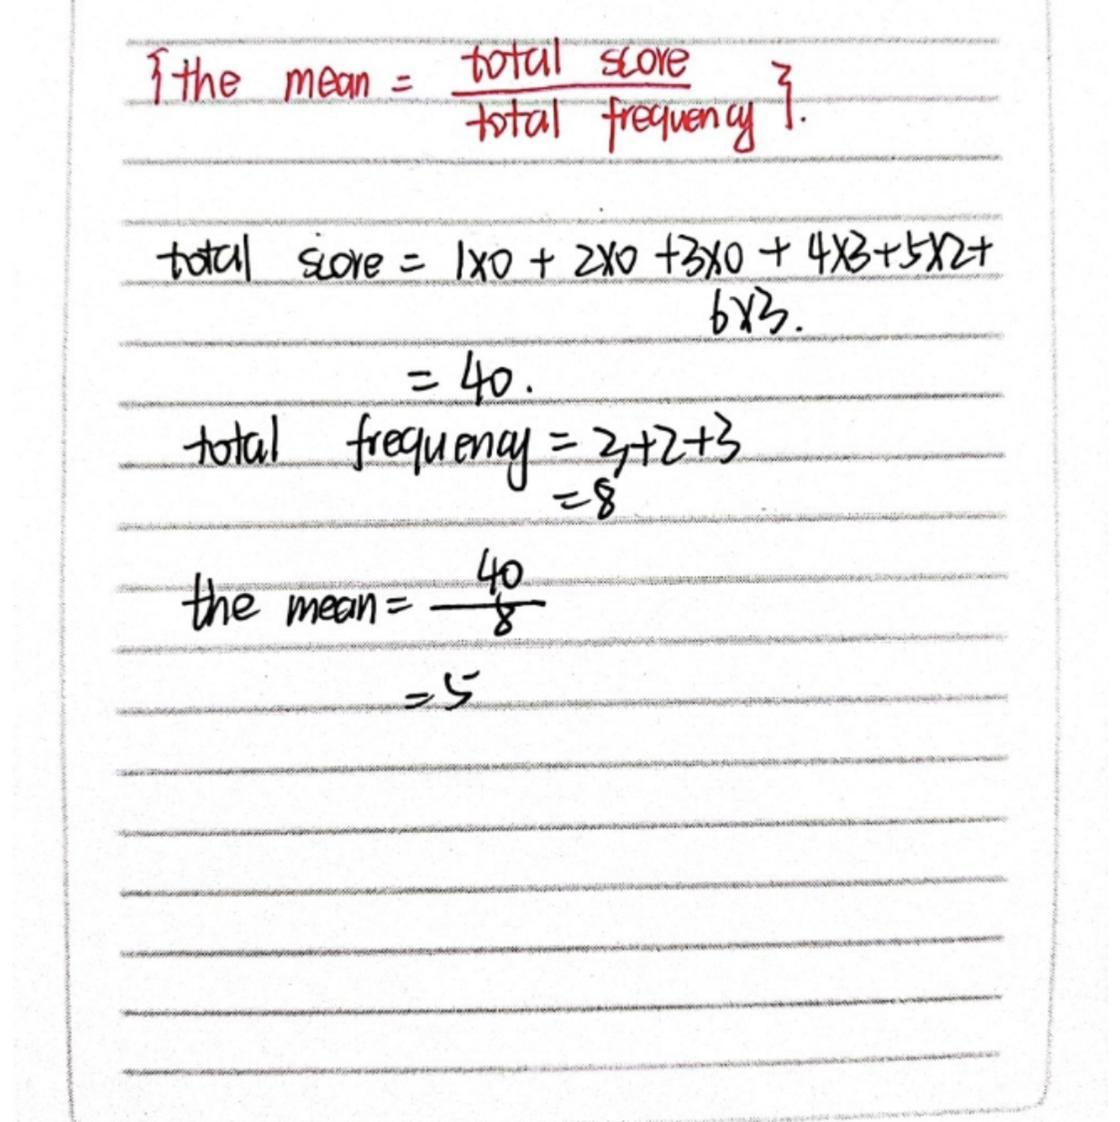 {the mean = total score / total frequency}.
total score = 1×0 + 2×0 +3×0 + 4×3+5×2+
6×3.
= 40.
total frequency = 3+2+3
=8
the mean = 40 / 8
=5